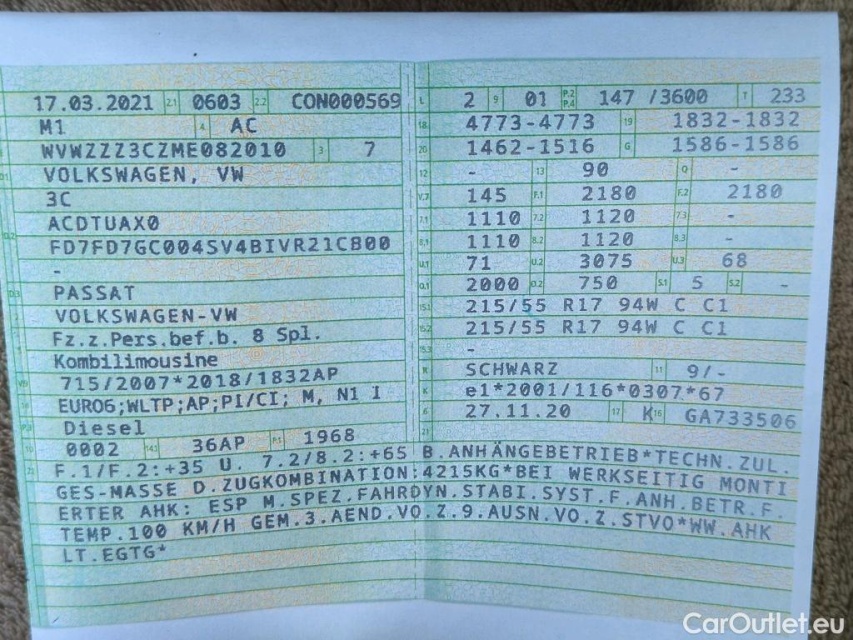 17.03.2021 2.1 0603 2.2 CON000569
M1 4 AC
WVWZZZ3CZME082010 3 7
VOLKSWAGEN, VW
3C
ACDTUAX0
FD7FD7GC004SV4BIVR21CB00
-
PASSAT
VOLKSWAGEN-VW
Fz.z.Pers.bef.b. 8 Spl.
Kombilimousine
715/2007*2018/1832AP
EURO6;WLTP;AP;PI/CI; M, N1 I
Diesel
0002 14.1 36AP P.1 1968
L 2 9 01 P.2 P.4 147 /3600 T 233
18 4773-4773 19 1832-1832
20 1462-1516 G 1586-1586
12 - 13 90 Q -
V.7 145 F.1 2180 F.2 2180
7.1 1110 7.2 1120 7.3 -
8.1 1110 8.2 1120 8.3 -
U.1 71 U.2 3075 U.3 68
O.1 2000 O.2 750 S.1 5 S.2 -
15.1 215/55 R17 94W C C1
15.2 215/55 R17 94W C C1
15.3 -
R SCHWARZ 11 9/-
K e1*2001/116*0307*67
6 27.11.20 17 K 16 GA733506
21
F.1/F.2:+35 U. 7.2/8.2:+65 B.ANHÄNGEBETRIEB*TECHN.ZUL.
GES-MASSE D.ZUGKOMBINATION:4215KG*BEI WERKSEITIG MONTI
ERTER AHK: ESP M.SPEZ.FAHRDYN.STABI.SYST.F.ANH.BETR.F.
TEMP.100 KM/H GEM.3.AEND.VO.Z.9.AUSN.VO.Z.STVO*WW.AHK
LT.EGTG*
CarOutlet.eu